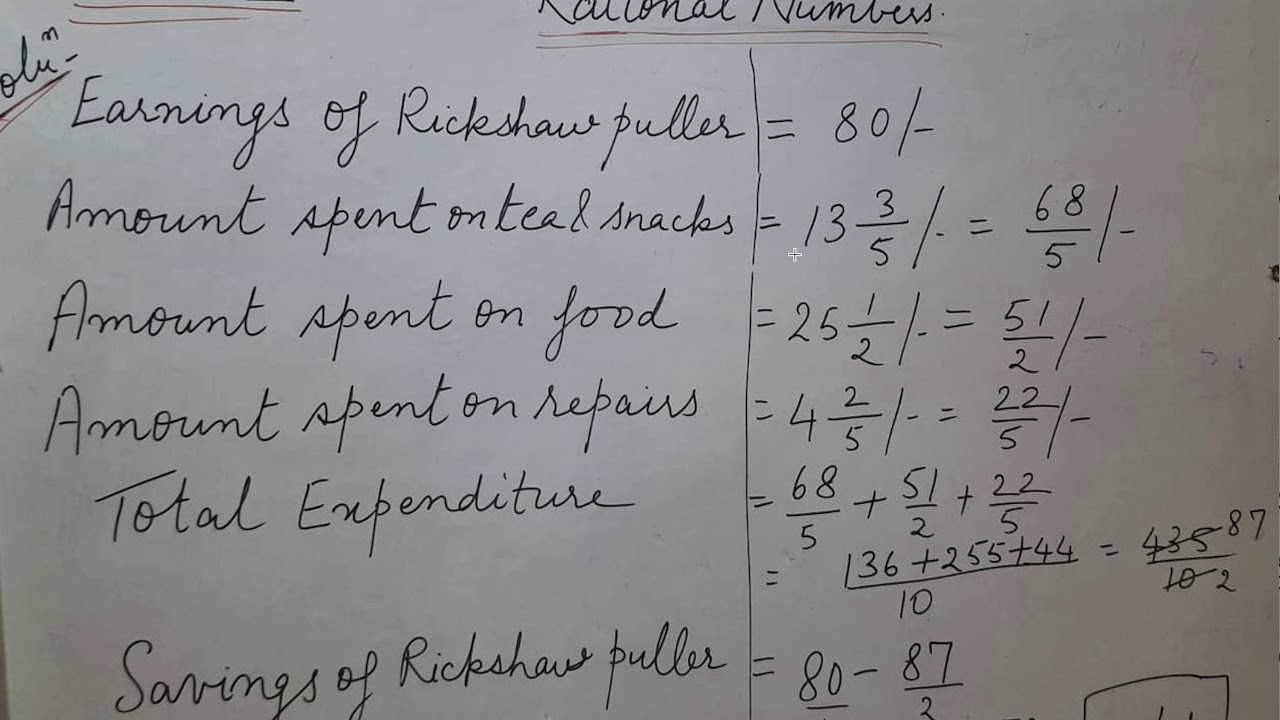 Rational Numbers.
Soluⁿ-
Earnings of Rickshaw puller = 80/-
Amount spent on tea & snacks = 13 3/5 /- = 68/5 /-
Amount spent on food = 25 1/2 /- = 51/2 /-
Amount spent on repairs = 4 2/5 /- = 22/5 /-
Total Expenditure = 68/5 + 51/2 + 22/5
= 136+255+44/10 = 435/10 87/2
Savings of Rickshaw puller = 80 - 87/2